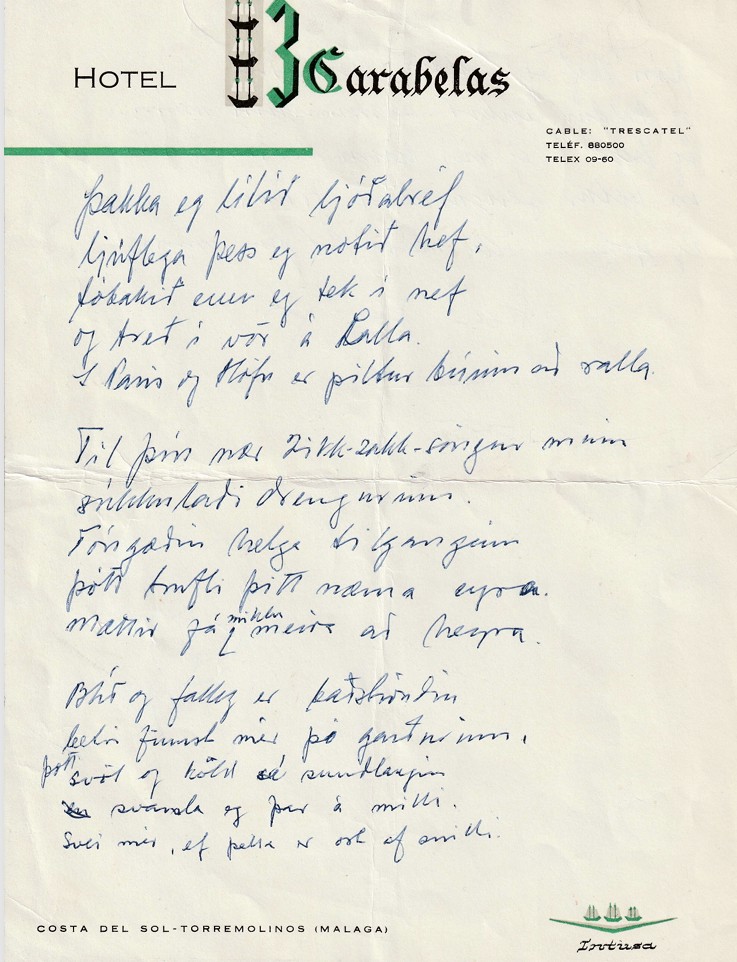 HOTEL 3 Carabelas
CABLE: "TRESCATEL"
TELÉF. 880500
TELEX 09-60
Þakka eg lítið ljóðabréf
ljúflega þess eg notið hef,
tóbakið enn eg tek í nef
og treð í vör á Lalla.
Í París og Höfn er piltur búinn að ralla.
Til þín nær Zikk-zakk-söngur minn
súkkulaði drengurinn.
Tóngæðin helga tilganginn
þótt trufli þitt næma eyra.
Mættir fá miklu meira að heyra.
Blíð og falleg er baðströndin
betri finnst mér þó garðurinn,
þótt svöl og köld sé sundlaugin
svamla eg þar á milli.
Svei mér, ef þetta er ort af snilli.
COSTA DEL SOL-TORREMOLINOS (MALAGA)
Intusa